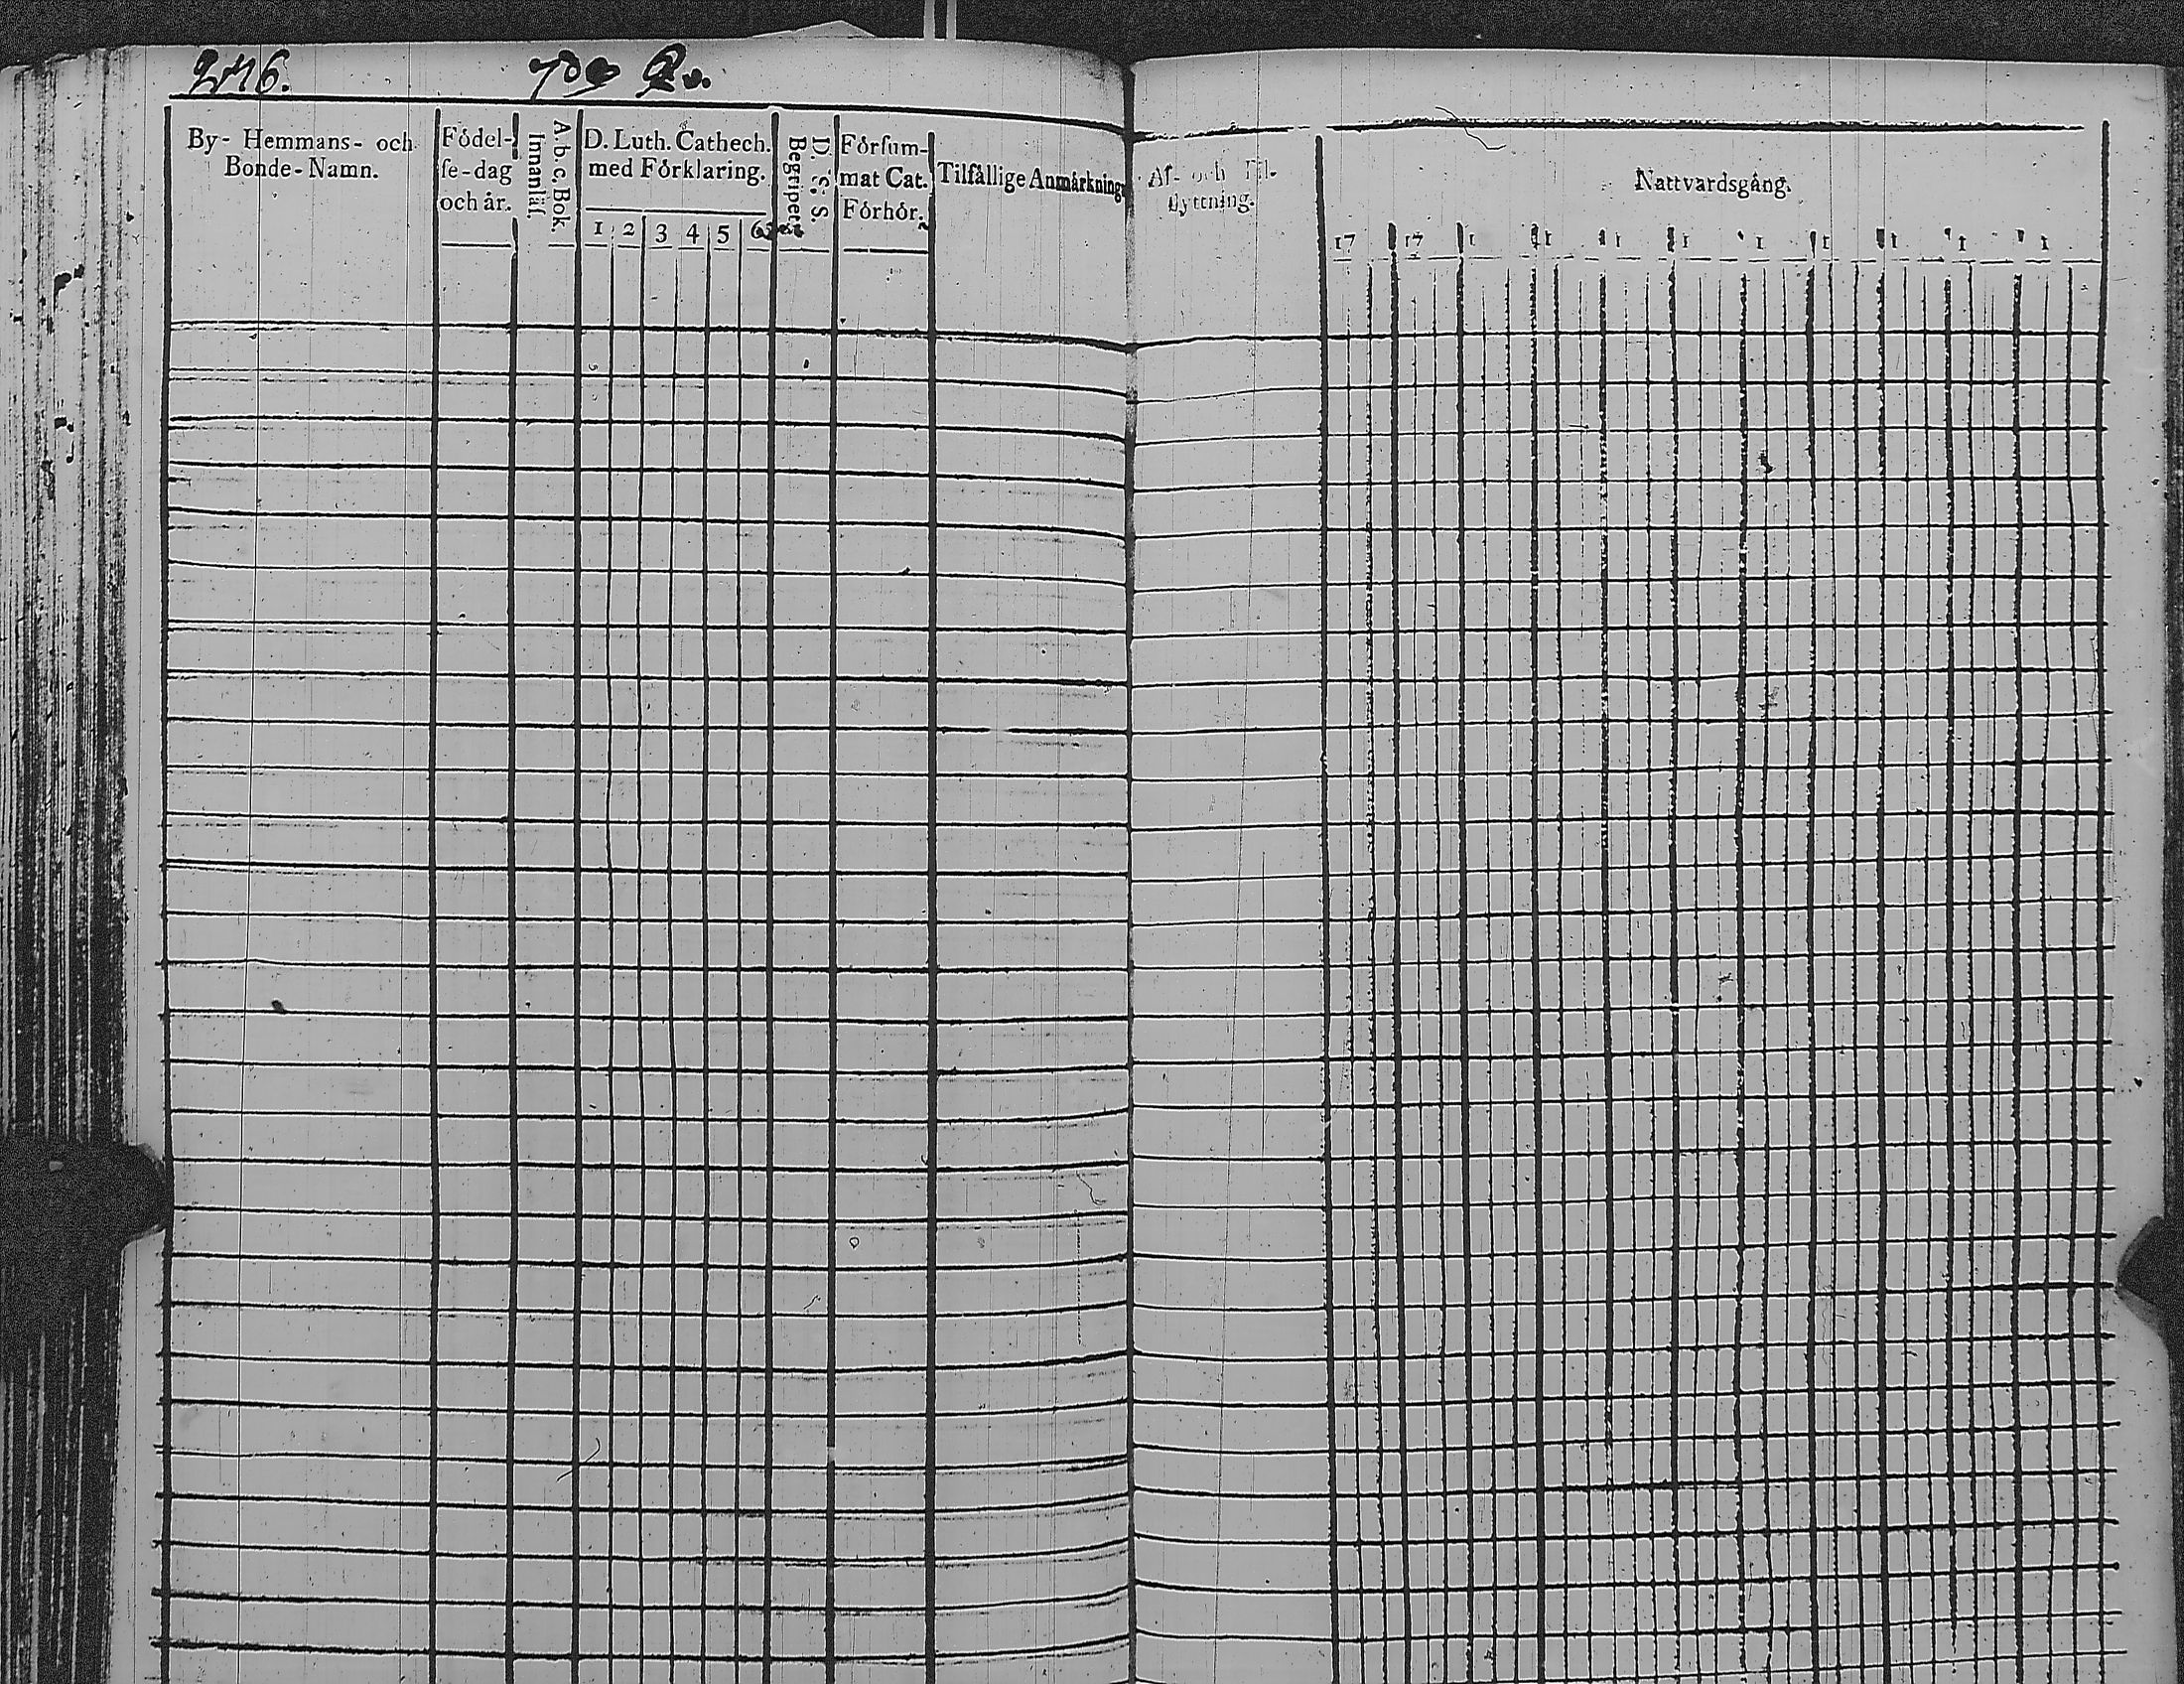 276.
By- Hemmans- och
Bonde-Namn.
Födel-
se-dag
och år.
A b c Bok.
Innanläs.
D. Luth. Cathech.
med Förklaring.
1 2 3 4 5 6
D. S. S.
Begripet
Försum-
mat Cat.
Förhör.
Tilfällige Anmärkning
Af- och Til-
flyttning.
Nattvardsgång.
17 17 1 1 1 1 1 1 1 1 1